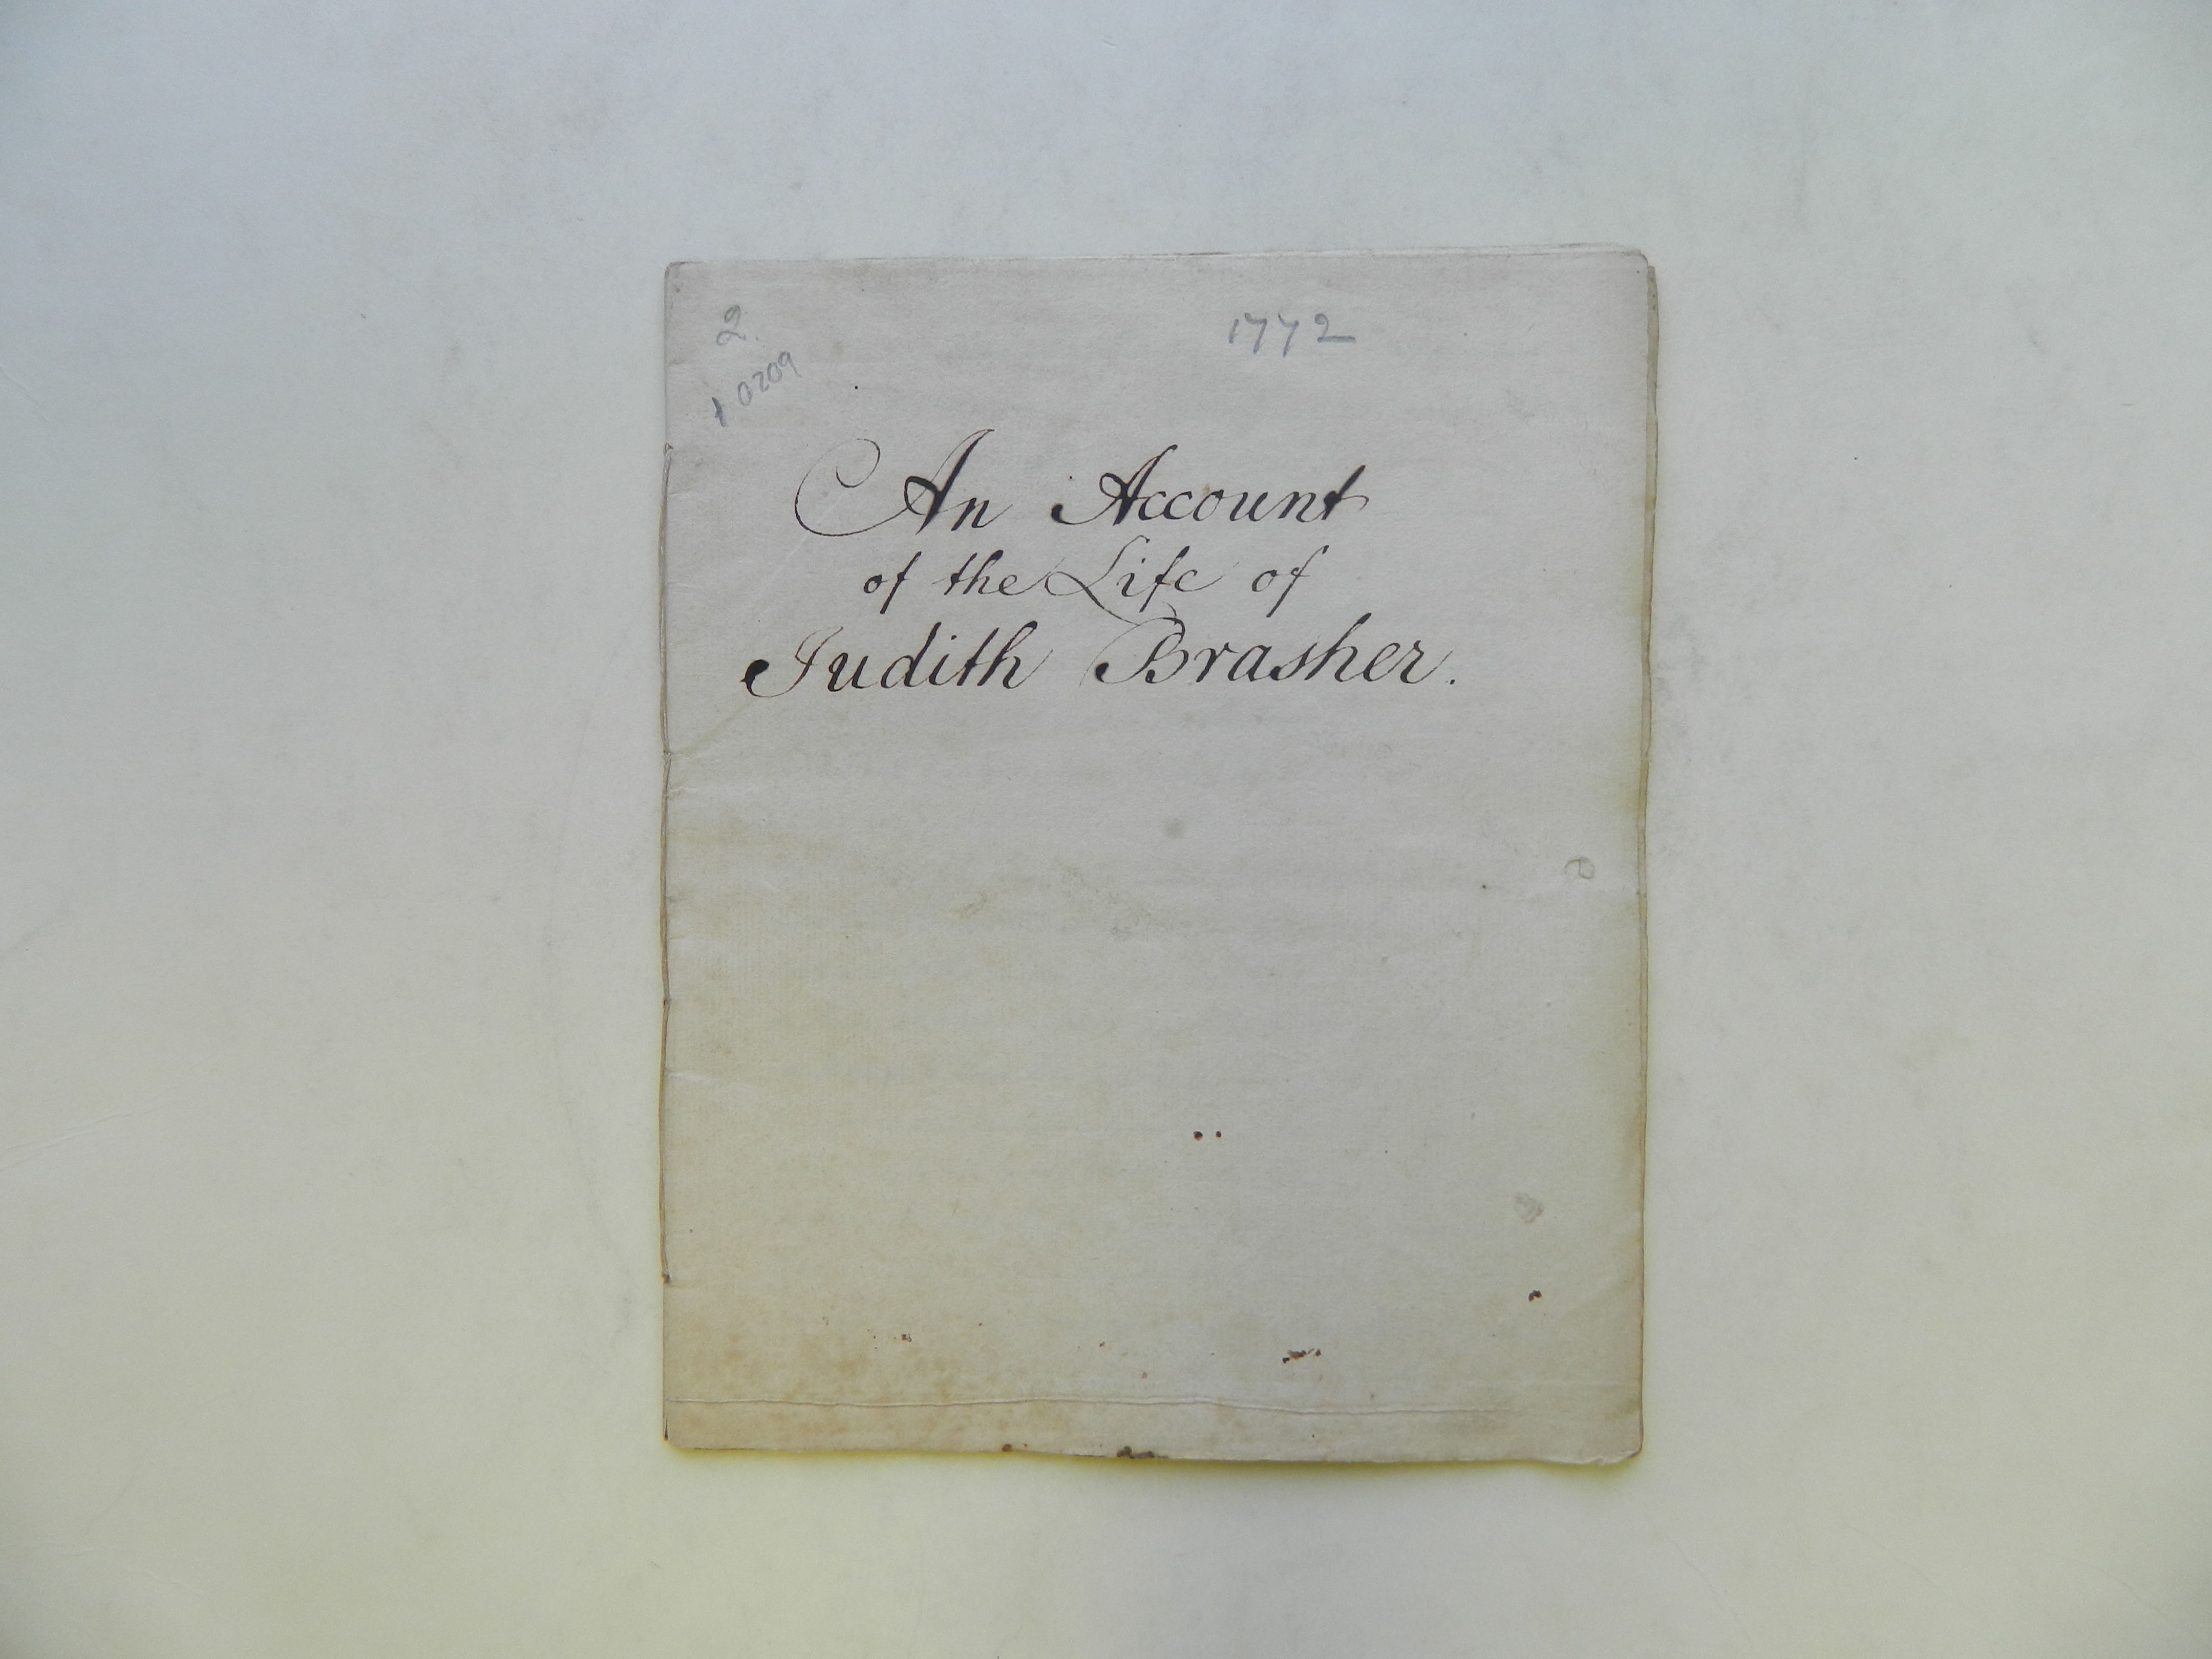 2.
1772
10209
An Account
of the Life of
Judith Brasher.